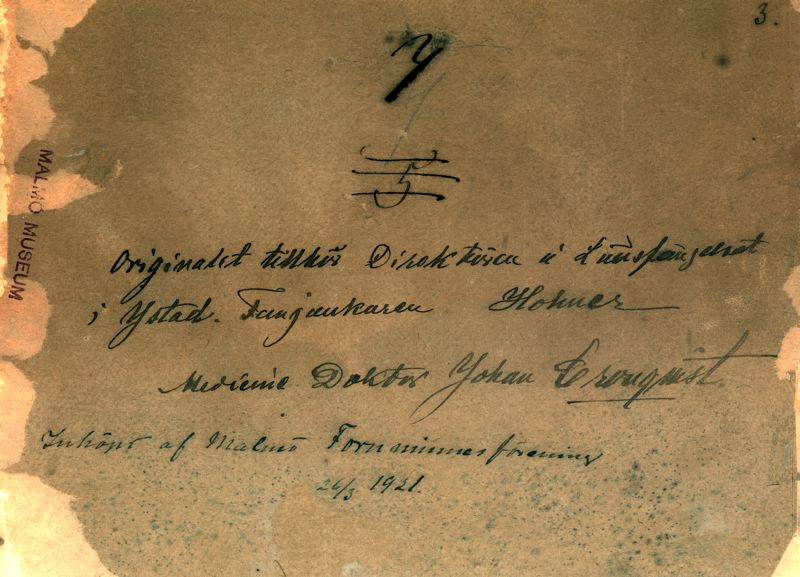 3.
7
5
Originalet tillhör Direktören å Länsfängelset
i Ystad. Hohner
Medicine Doktor Johan Cronquist.
Inköpt af Malmö Fornminnesförening
26/3 1921.
MALMÖ MUSEUM